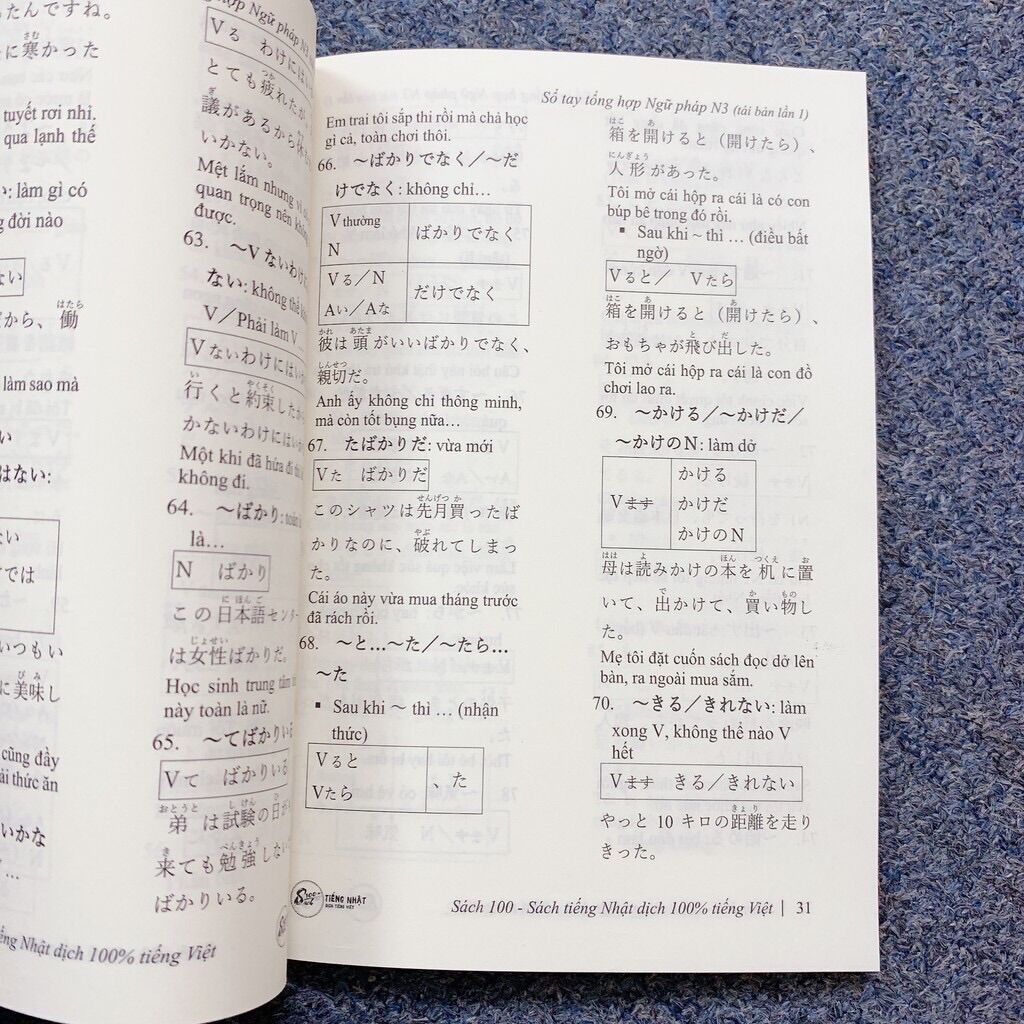 たんですね。
に寒かった
さむ
tuyết rơi nhỉ.
qua lạnh thế
làm gì có
đời nào
ない
だから、働
はたら
làm sao mà
はない:
ない
いつもい
に美味し
びみ
cũng đầy
thức ăn
いかな
Tiếng Nhật dịch 100% tiếng Việt
hợp Ngữ pháp N3
Vる わけには
とても疲れたが
つか
議があるから
ぎ
いかない。
Mệt lắm nhưng vì
quan trọng nên không
được.
63. ～Vないわけに
ない: không thể không
V／Phải làm V
Vないわけにはい
行くと約束したか
い やくそく
かないわけにはい
Một khi đã hứa đi thì
không đi.
64. ～ばかり: toàn
là…
N ばかり
この日本語センター
にほんご
は女性ばかりだ。
じょせい
Học sinh trung tâm
này toàn là nữ.
65. ～てばかりいる
Vて ばかりいる
弟は試験の日が
おとうと しけん ひ
来ても勉強しない
き べんきょう
ばかりいる。
Sổ tay tổng hợp Ngữ pháp N3 (tái bản lần 1)
Em trai tôi sắp thi rồi mà chả học
gì cả, toàn chơi thôi.
66. ～ばかりでなく／～だ
けでなく: không chỉ…
V thường
N
ばかりでなく
Vる／N
Aい／Aな
だけでなく
かれ あたま
彼は頭がいいばかりでなく、
しんせつ
親切だ。
Anh ấy không chỉ thông minh,
mà còn tốt bụng nữa…
67. たばかりだ: vừa mới
Vた ばかりだ
せんげつ か
このシャツは先月買ったば
やぶ
かりなのに、破れてしまっ
た。
Cái áo này vừa mua tháng trước
đã rách rồi.
68. ～と…～た／～たら…
～た
▪ Sau khi ~ thì … (nhận
thức)
Vると
Vたら
た
はこ あ
箱を開けると（開けたら）、
にんぎょう
人形があった。
Tôi mở cái hộp ra cái là có con
búp bê trong đó rồi.
▪ Sau khi ~ thì … (điều bất
ngờ)
Vると／ Vたら
はこ あ あ
箱を開けると（開けたら）、
と だ
おもちゃが飛び出した。
Tôi mở cái hộp ra cái là con đồ
chơi lao ra.
69. ～かける／～かけだ／
～かけのN: làm dở
Vます
かける
かけだ
かけのN
はは よ ほん つくえ お
母は読みかけの本を机に置
で か もの
いて、出かけて、買い物し
た。
Mẹ tôi đặt cuốn sách đọc dở lên
bàn, ra ngoài mua sắm.
70. ～きる／きれない: làm
xong V, không thể nào V
hết
Vます きる／きれない
きょり はし
やっと10キロの距離を走り
きった。
TIẾNG NHẬT
DỊCH TIẾNG VIỆT
Sách 100 - Sách tiếng Nhật dịch 100% tiếng Việt | 31